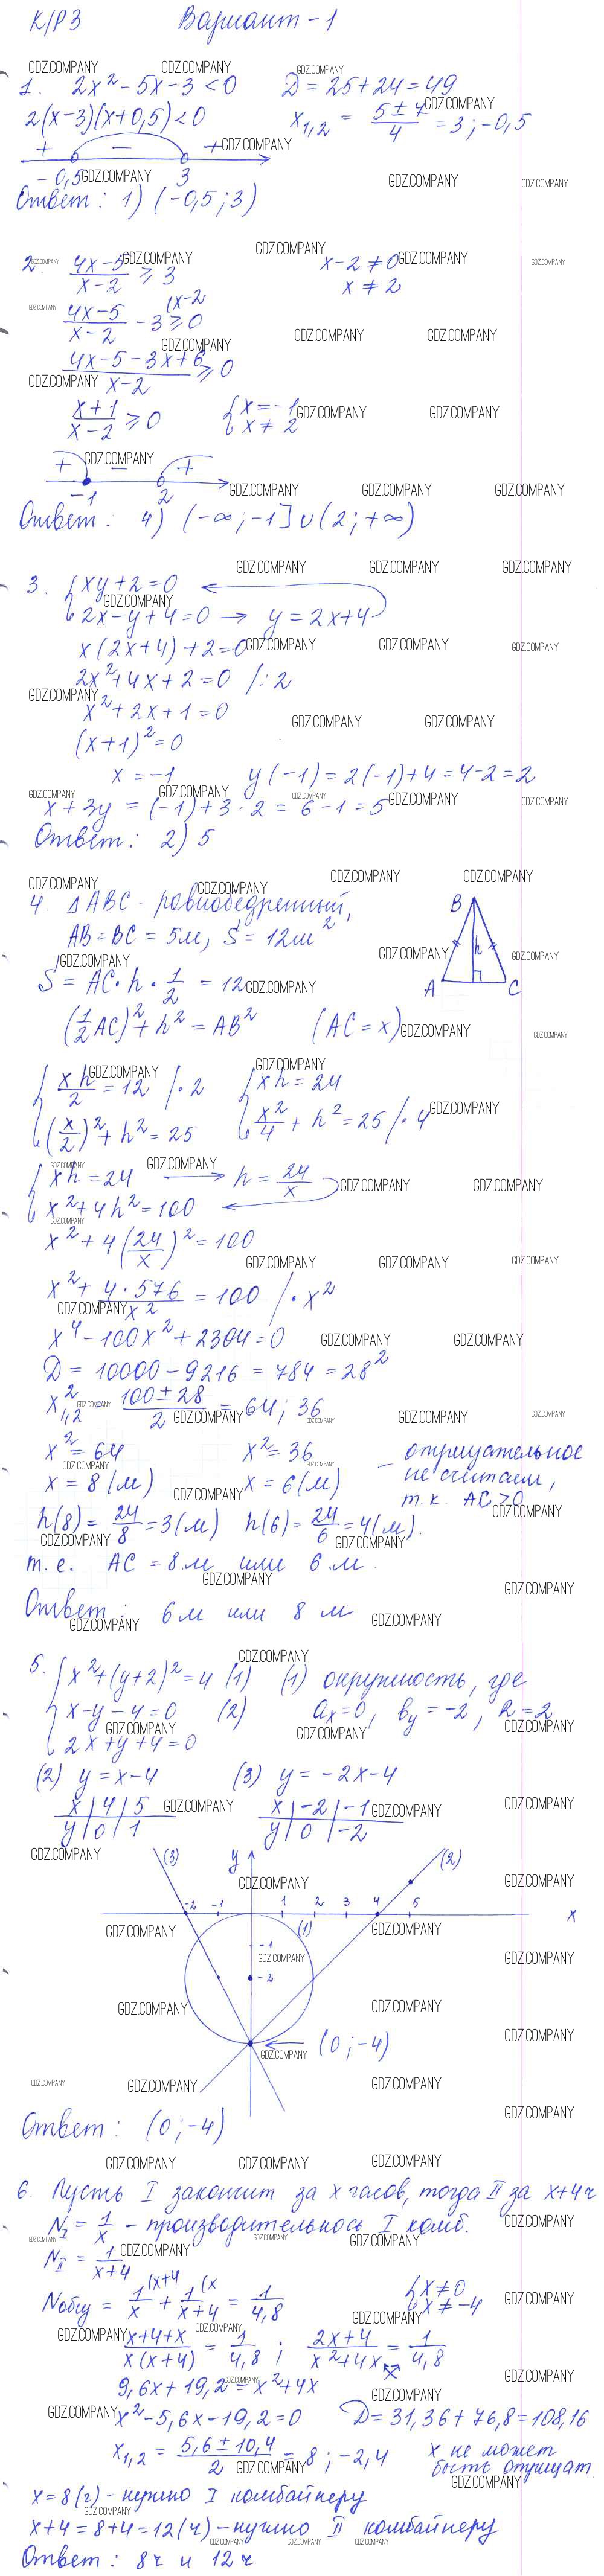 К/Р3 Вариант-1
1. 2x² - 5x - 3 < 0 D = 25 + 24 = 49
2(x-3)(x+0,5) < 0 x₁,₂ = (5 ± 7)/4 = 3; -0,5
+ - +
-0,5 3
Ответ: 1) (-0,5; 3)
2. (4x-5)/(x-2) ≥ 3 x-2 ≠ 0
x ≠ 2
(4x-5)/(x-2) - 3 ≥ 0 (x-2
(4x-5-3x+6)/(x-2) ≥ 0
(x+1)/(x-2) ≥ 0 { x = -1
x ≠ 2
+ - +
-1 2
Ответ: 4) (-∞; -1] ∪ (2; +∞)
3. { xy + 2 = 0
2x - y + 4 = 0 → y = 2x+4
x(2x+4) + 2 = 0
2x² + 4x + 2 = 0 /:2
x² + 2x + 1 = 0
(x+1)² = 0
x = -1 y(-1) = 2(-1)+4 = 4-2 = 2
x + 3y = (-1) + 3·2 = 6-1 = 5
Ответ: 2) 5
4. △ABC - равнобедренный,
AB = BC = 5м, S = 12м²
B h A C
S = AC·h·1/2 = 12
(1/2 AC)² + h² = AB² (AC = x)
{ xh/2 = 12 /·2 { xh = 24
(x/2)² + h² = 25 x²/4 + h² = 25 /·4
{ xh = 24 → h = 24/x
x² + 4h² = 100
x² + 4(24/x)² = 100
x² + 4·576/x² = 100 /·x²
x⁴ - 100x² + 2304 = 0
D = 10000 - 9216 = 784 = 28²
x²₁,₂ = (100 ± 28)/2 = 64; 36
x² = 64 x² = 36 - отрицательное
x = 8 (м) x = 6 (м) не считаем,
т.к. AC > 0
h(8) = 24/8 = 3 (м) h(6) = 24/6 = 4 (м).
т.е. AC = 8 м или 6 м.
Ответ: 6 м или 8 м
5. { x² + (y+2)² = 4 (1) (1) окружность, где
x - y - 4 = 0 (2) aₓ = 0, b_y = -2, R = 2
2x + y + 4 = 0
(2) y = x-4 (3) y = -2x-4
x | 4 | 5 x | -2 | -1
y | 0 | 1 y | 0 | -2
(3) y (2)
-2 -1 1 2 3 4 5 x
(1)
-1
-2
(0; -4)
Ответ: (0; -4)
6. Пусть I закончит за x часов, тогда II за x+4 ч
N_I = 1/x - производительнось I комб.
N_II = 1/(x+4)
Nобщ = 1/x (x+4 + 1/(x+4) (x = 1/4,8 { x ≠ 0
x ≠ -4
(x+4+x)/(x(x+4)) = 1/4,8 ; (2x+4)/(x²+4x) = 1/4,8
9,6x + 19,2 = x² + 4x
x² - 5,6x - 19,2 = 0 D = 31,36 + 76,8 = 108,16
x₁,₂ = (5,6 ± 10,4)/2 = 8; -2,4 x не может
быть отрицат.
x = 8 (ч) - нужно I комбайнеру
x+4 = 8+4 = 12 (ч) - нужно II комбайнеру
Ответ: 8 ч и 12 ч
GDZ.COMPANY